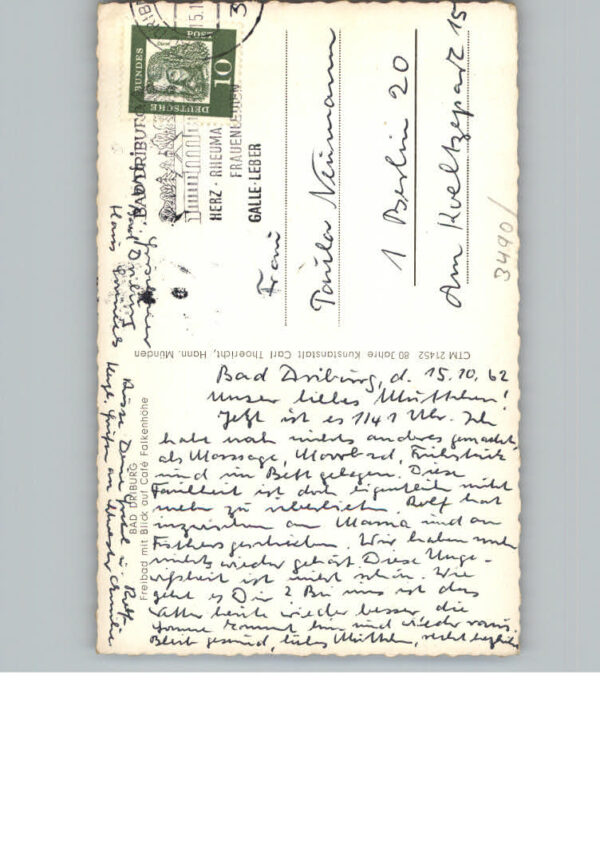 Bad Driburg, d. 15.10.62
Unser liebes Muttchen!
Jetzt ist es 11 41 Uhr. Ich
habe noch nichts anderes gemacht,
als Massage, Moorbad, Frühstück
und im Bett gelegen. Diese
Faulheit ist doch eigentlich nicht
mehr zu überbieten. Rolf hat
inzwischen an Mama und an
geschrieben. Wir haben noch
nichts wieder gehört. Diese Unge-
wißheit ist nicht schön. Wie
geht es Dir? Bei uns ist das
Wetter heute wieder besser, die
Sonne kommt hin und wieder raus.
Bleib gesund, liebes Muttchen, recht herzliche
Grüsse Deine u. Rolf
BAD DRIBURG
Freibad mit Blick auf Café Falkenhöhe
CTM 21452 80 Jahre Kunstanstalt Carl Thoericht, Hann. Münden
Bad Driburg
Haus
BAD DRIBURG
HERZ · RHEUMA
FRAUENLEIDEN
GALLE · LEBER
DEUTSCHE BUNDESPOST
10
Frau
Paula Neumann
1 Berlin 20
Am Koeltzepark 15
3490/